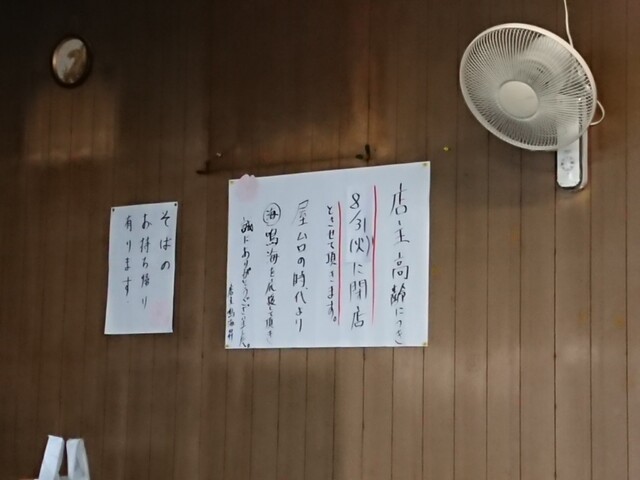 店主高齢につき
8/31(火)に閉店
とさせて頂きます。
屋台の時代より
㊙鳴海を
誠にありがとうございました。
そばの
お持ち帰り
有ります